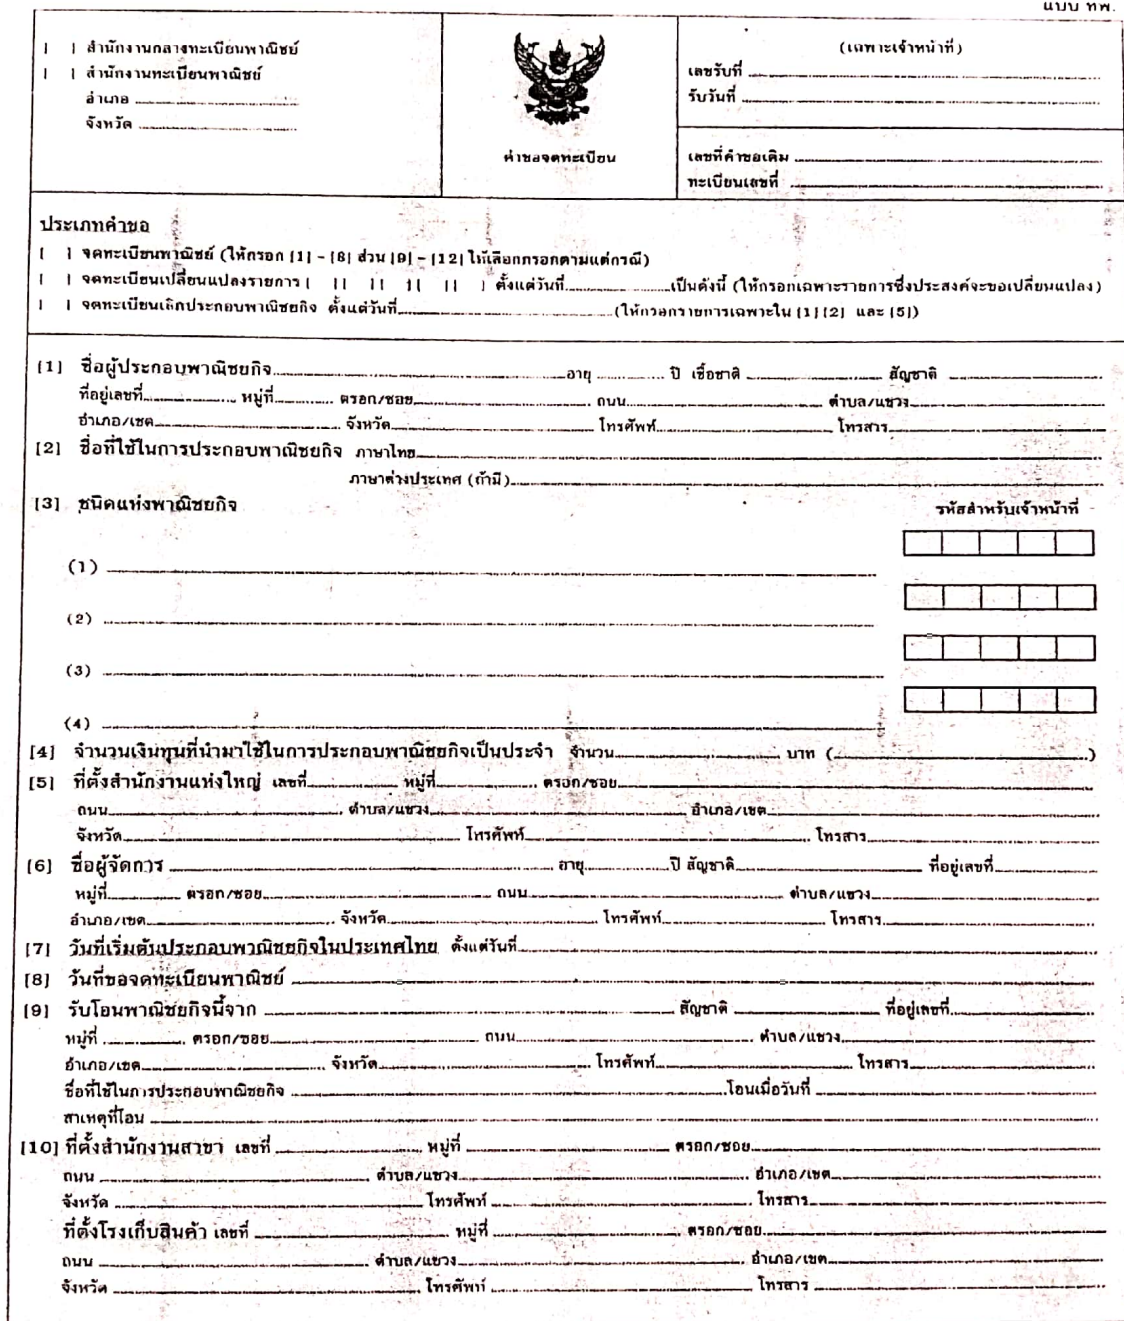 แบบ ทพ.
[ ] สำนักงานกลางทะเบียนพาณิชย์
[ ] สำนักงานทะเบียนพาณิชย์
อำเภอ ........................
จังหวัด ........................
คำขอจดทะเบียน
(เฉพาะเจ้าหน้าที่)
เลขรับที่ ........................
รับวันที่ ........................
เลขที่คำขอเดิม ........................
ทะเบียนเลขที่ ........................
ประเภทคำขอ
[ ] จดทะเบียนพาณิชย์ (ให้กรอก [1] - [8] ส่วน [9] - [12] ให้เลือกกรอกตามแต่กรณี)
[ ] จดทะเบียนเปลี่ยนแปลงรายการ [ ] [ ] [ ] [ ] [ ] ตั้งแต่วันที่............เป็นดังนี้ (ให้กรอกเฉพาะรายการซึ่งประสงค์จะขอเปลี่ยนแปลง)
[ ] จดทะเบียนเลิกประกอบพาณิชยกิจ ตั้งแต่วันที่............(ให้กรอกรายการเฉพาะใน [1] [2] และ [5])
[1] ชื่อผู้ประกอบพาณิชยกิจ............อายุ ............ ปี เชื้อชาติ ............ สัญชาติ ............
ที่อยู่เลขที่............ หมู่ที่............ ตรอก/ซอย............ ถนน............ ตำบล/แขวง............
อำเภอ/เขต............ จังหวัด............ โทรศัพท์............ โทรสาร............
[2] ชื่อที่ใช้ในการประกอบพาณิชยกิจ ภาษาไทย............
ภาษาต่างประเทศ (ถ้ามี)............
[3] ชนิดแห่งพาณิชยกิจ รหัสสำหรับเจ้าหน้าที่
(1) ............
(2) ............
(3) ............
(4) ............
[4] จำนวนเงินทุนที่นำมาใช้ในการประกอบพาณิชยกิจเป็นประจำ จำนวน............ บาท (............)
[5] ที่ตั้งสำนักงานแห่งใหญ่ เลขที่............ หมู่ที่............ ตรอก/ซอย............
ถนน............ ตำบล/แขวง............ อำเภอ/เขต............
จังหวัด............ โทรศัพท์............ โทรสาร............
[6] ชื่อผู้จัดการ ............ อายุ............ปี สัญชาติ............ ที่อยู่เลขที่............
หมู่ที่............ ตรอก/ซอย............ ถนน............ ตำบล/แขวง............
อำเภอ/เขต............ จังหวัด............ โทรศัพท์............ โทรสาร............
[7] วันที่เริ่มต้นประกอบพาณิชยกิจในประเทศไทย ตั้งแต่วันที่............
[8] วันที่ขอจดทะเบียนพาณิชย์ ............
[9] รับโอนพาณิชยกิจนี้จาก ............ สัญชาติ ............ ที่อยู่เลขที่............
หมู่ที่ ............ ตรอก/ซอย............ ถนน............ ตำบล/แขวง............
อำเภอ/เขต............ จังหวัด............ โทรศัพท์............ โทรสาร............
ชื่อที่ใช้ในการประกอบพาณิชยกิจ ............โอนเมื่อวันที่ ............
สาเหตุที่โอน ............
[10] ที่ตั้งสำนักงานสาขา เลขที่ ............ หมู่ที่ ............ ตรอก/ซอย............
ถนน ............ ตำบล/แขวง............ อำเภอ/เขต............
จังหวัด ............ โทรศัพท์ ............ โทรสาร............
ที่ตั้งโรงเก็บสินค้า เลขที่ ............ หมู่ที่ ............ ตรอก/ซอย............
ถนน ............ ตำบล/แขวง............ อำเภอ/เขต............
จังหวัด ............ โทรศัพท์ ............ โทรสาร ............